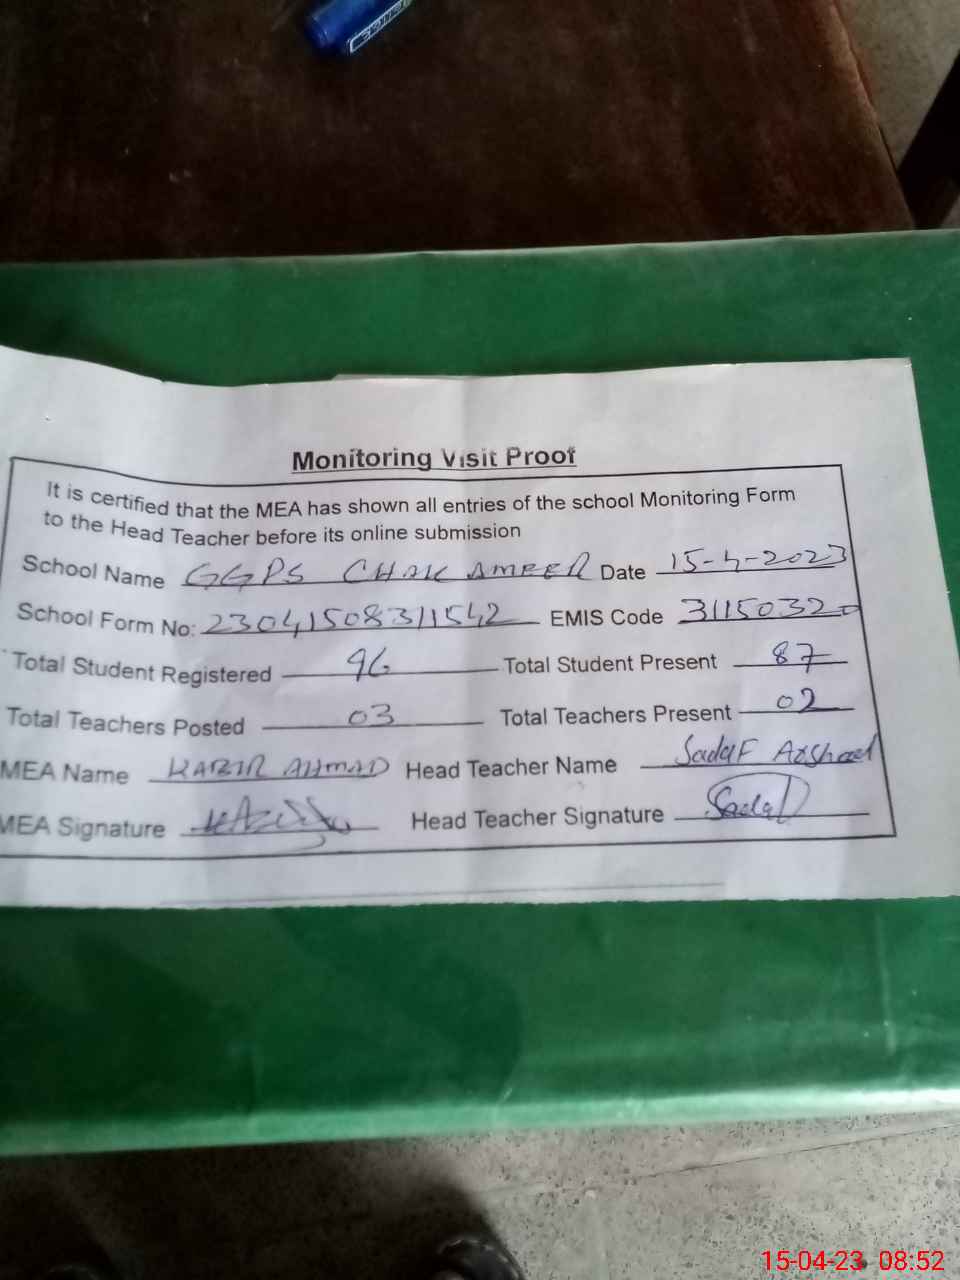 Monitoring Visit Proof
It is certified that the MEA has shown all entries of the school Monitoring Form
to the Head Teacher before its online submission
School Name GGPS CHAK AMEER Date 15-4-2023
School Form No: 23041508311542 EMIS Code 31150320
Total Student Registered 96 Total Student Present 87
Total Teachers Posted 03 Total Teachers Present 02
MEA Name KABIR AHMAD Head Teacher Name Sadaf Arshad
MEA Signature Head Teacher Signature
15-04-23 08:52